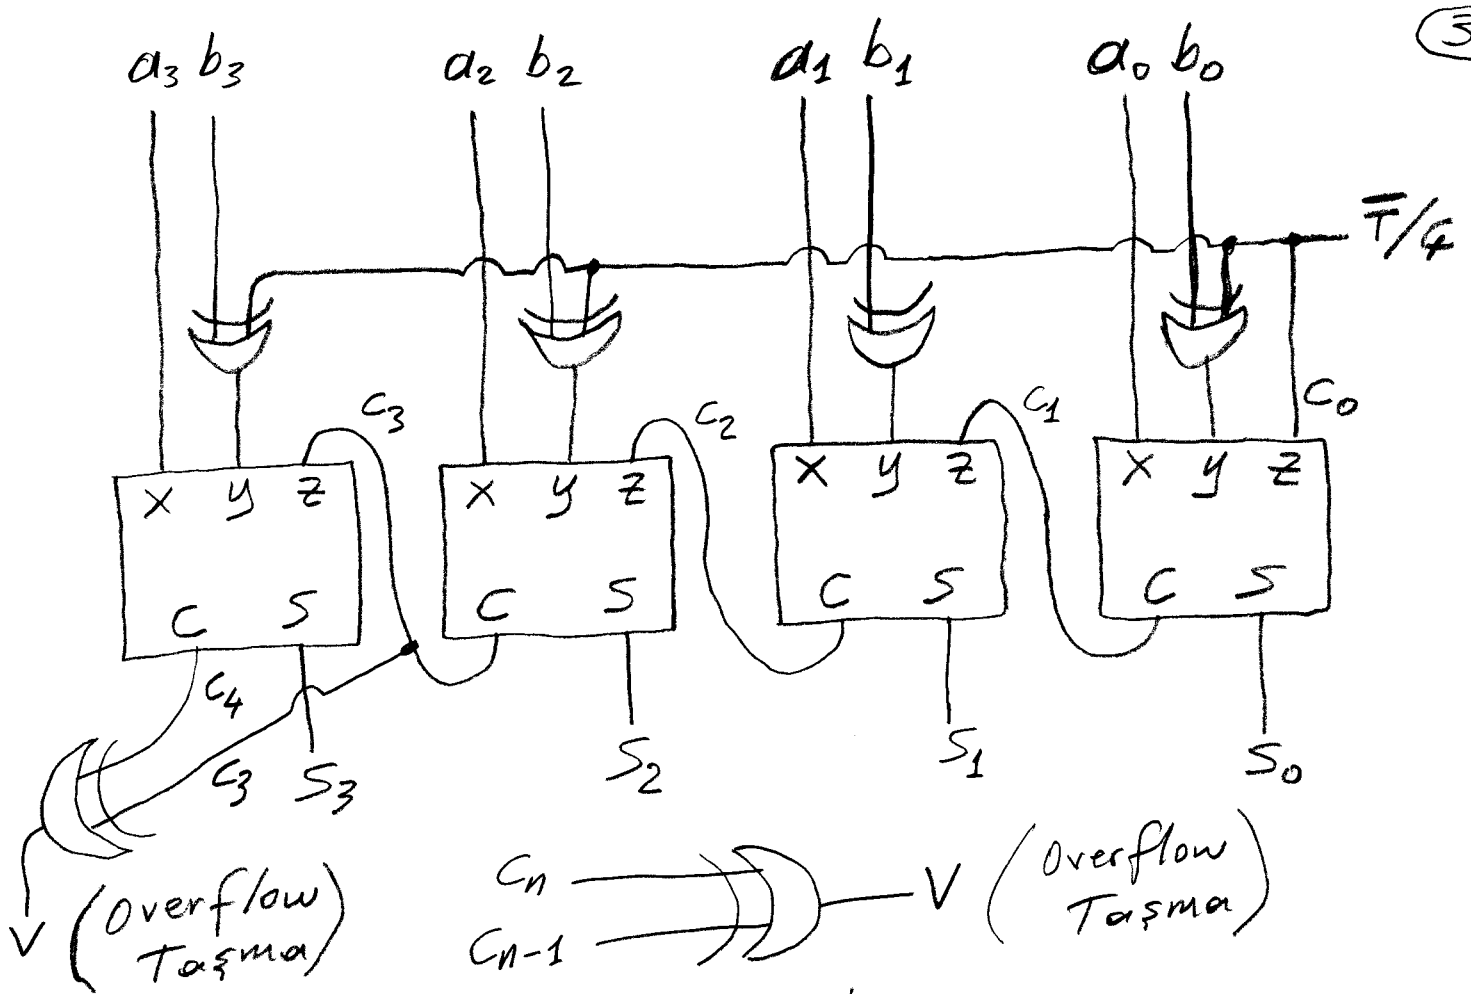 3
a3 b3 a2 b2 a1 b1 a0 b0
T̅/Ç
C3 C2 C1 C0
X y Z X y Z X y Z X y Z
C S C S C S C S
C4
C3 S3 S2 S1 S0
V (Overflow
Taşma)
Cn
Cn-1
V (Overflow
Taşma)